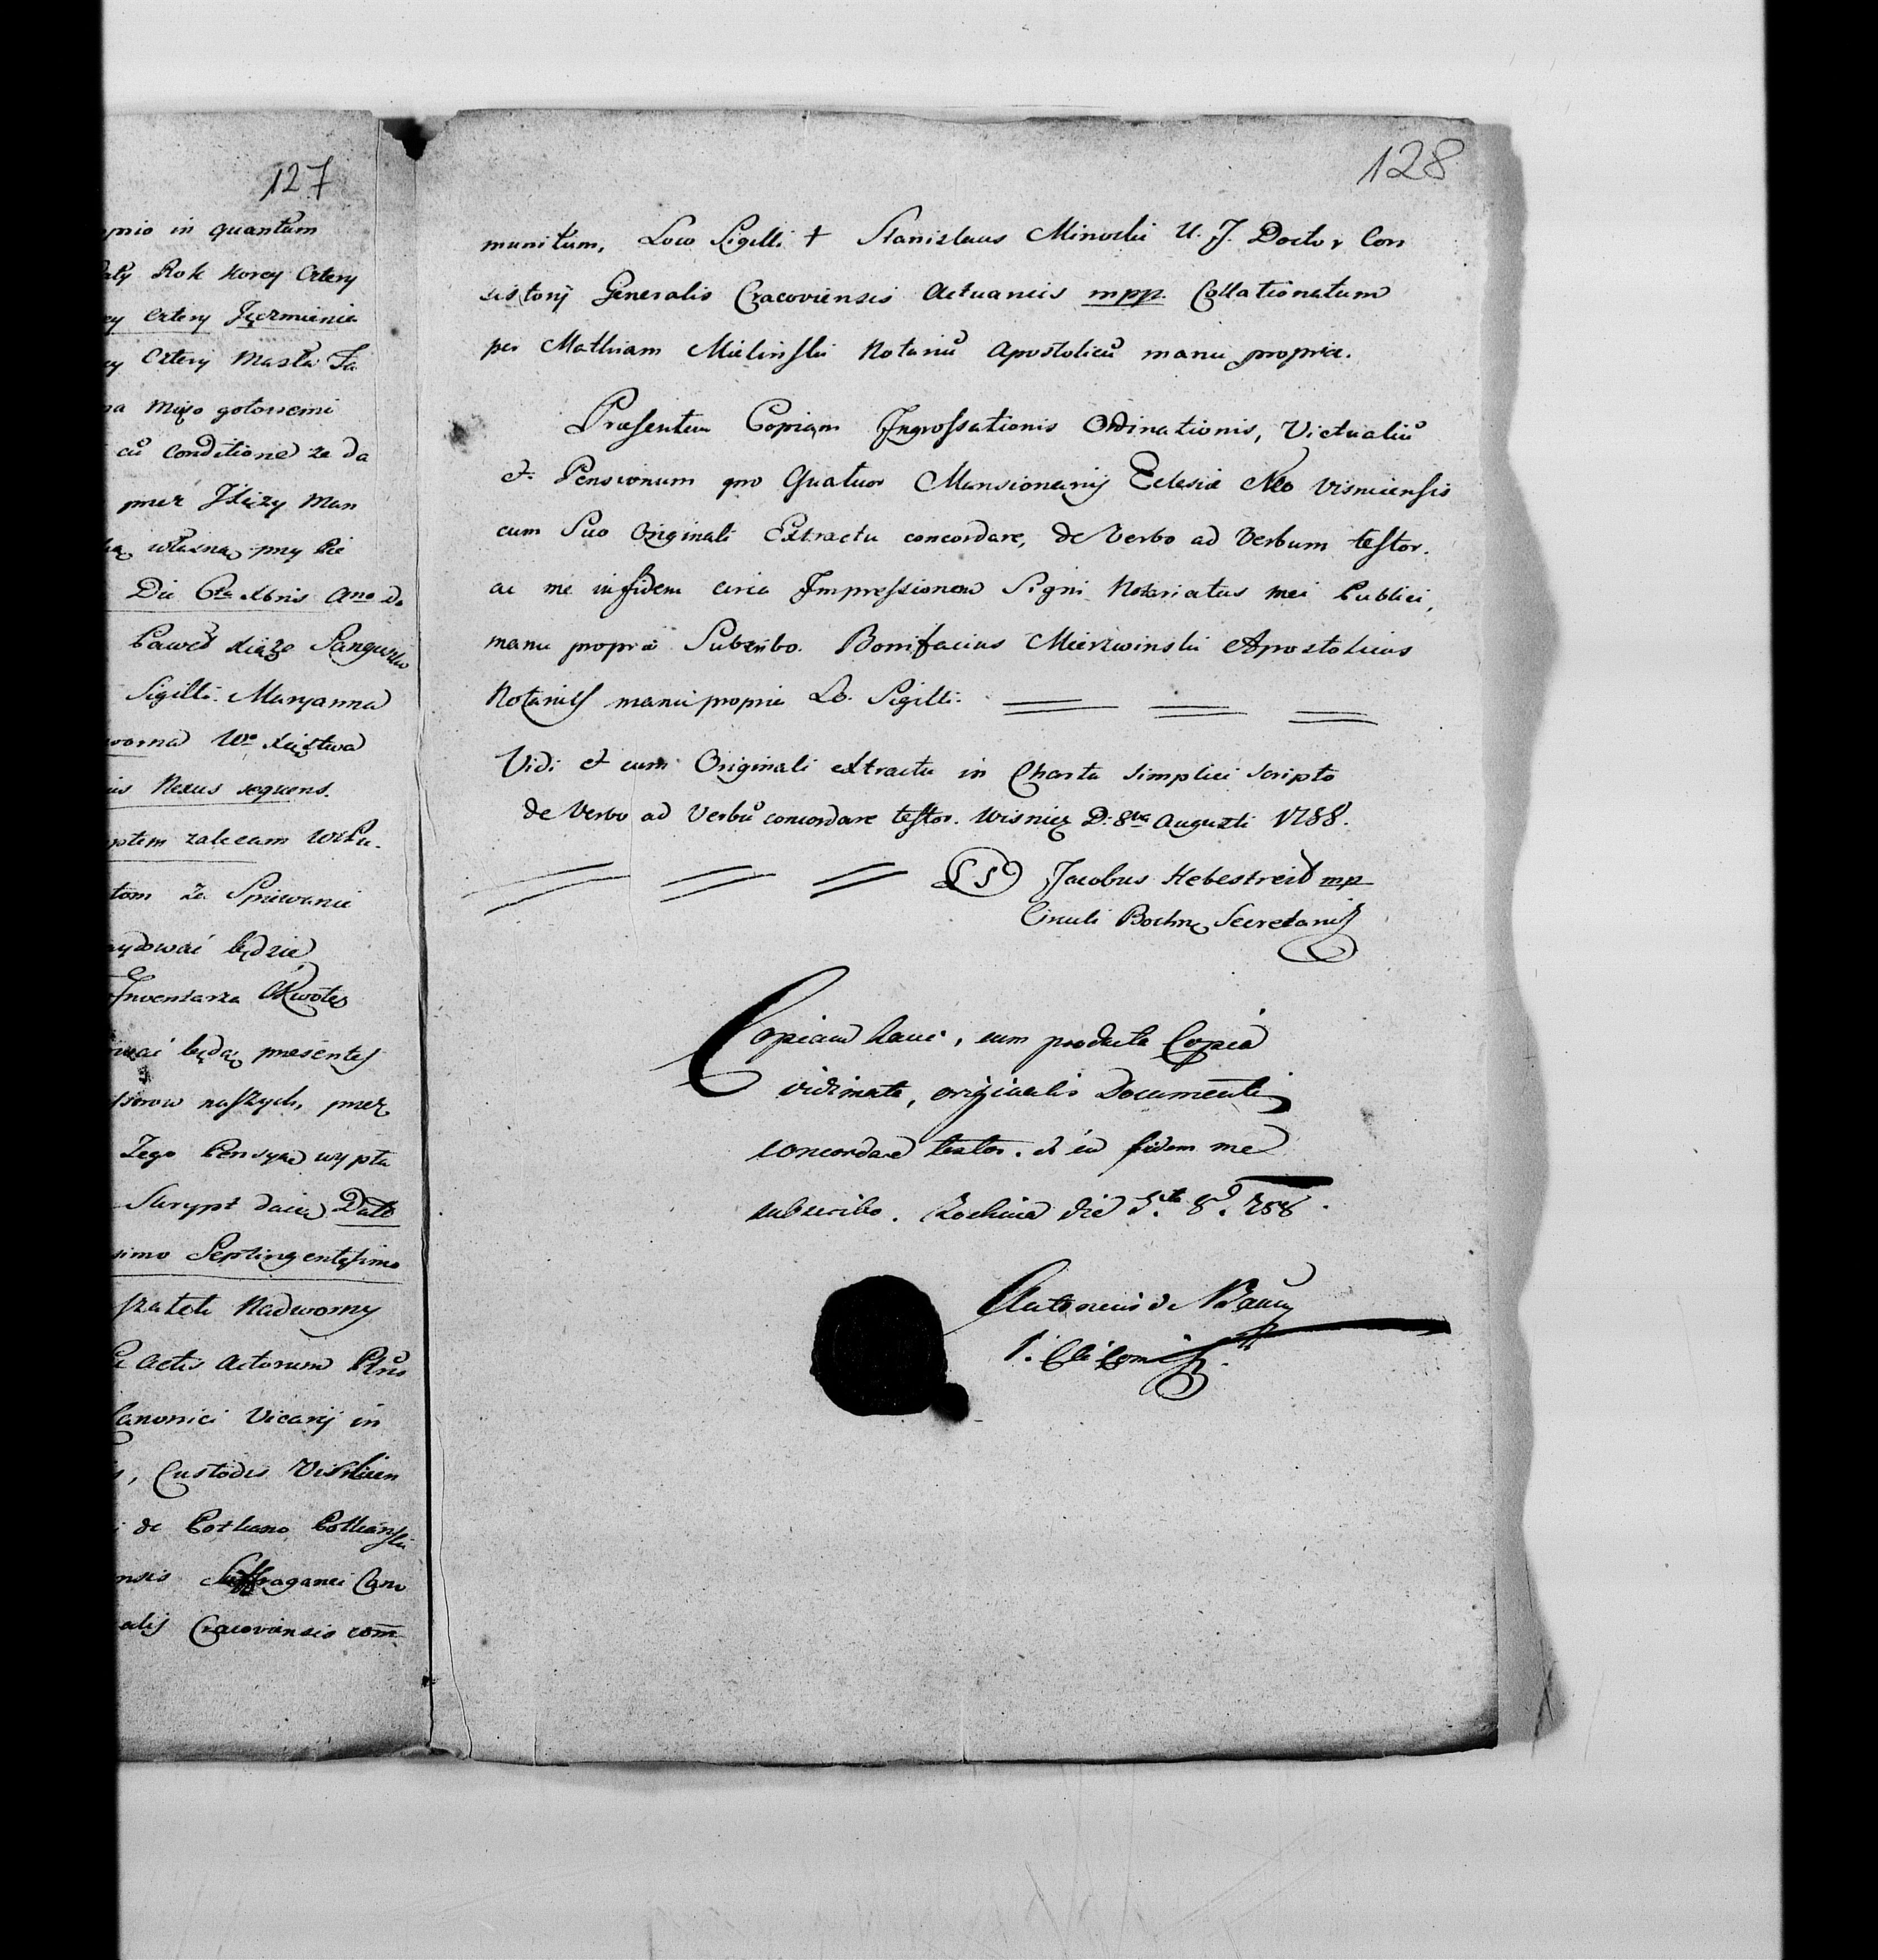 127
in quantum
Rok korcy Cztery
Cztery Jęczmienia
Cztery Masła Fa
Mięso gotowemi
cũ Conditione ze da
przez Xiązy Man
własną przy Pie
Die 6ta Xbris Ano Do
Paweł Xiąże Sanguszko
Sigilli. Maryanna
Wo Xięstwa
Nexus sequens.
zalecam
Za Spiewanie
będzie
Inwentarza Kwotę
będą præsentes
naszych, przez
Tego Pensyą wypła
Skrypt daię Datt
Septingentesimo
Nadworny
Actis Actorum
Canonici Vicarij in
Custodis Vislicien
de
Suffraganei Cano
Cracoviensis com
128
munitum, Loco Sigilli + Stanislaus Minocki U. J. Doctor Con
sistorij Generalis Cracoviensis Actuarius mpp. Collationatum
per Mathiam Mielinski Notariũ Apostolicũ manu propria.
Præsentem Copiam Ingrossationis Ordinationis, Victualiũ
et Pensionum pro Quatuor Mansionarijs Eclesiæ Neo Visniciensis
cum Suo Originali Extractu concordare, de Verbo ad Verbum testor.
ac me in fidem circa Impressionem Signi Notariatus mei Publici,
manu propria Subscribo. Bonifacius Mierzwinski Apostolicus
Notarius manu propria Lo. Sigilli.
Vidi et cum Originali extractu in Charta simplici scripto
de Verbo ad Verbũ concordare testor. Wisnicz D: 8va Augusti 1788.
LS Jacobus Hebestreid mp
Circuli Bochn. Secretarius
Copiam hanc, cum producta Copia
vidimata, originalis Documenti
concordare testor. et in fidem me
subscribo. Bochnia die 5.ta 8. 788.
Antonius de Baum